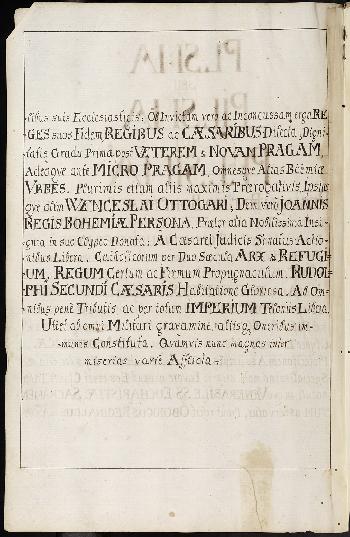 -ribus suis Ecclesiasticis; Ob Invictam vero ac Inconcussam erga RE
GES suos Fidem REGIBUS ac CÆSARIBUS Dilecta, Digni-
tatis Gradu Prima post VETEREM & NOVAM PRAGAM,
Adeoque ante MICRO PRAGAM, Omnesque Alias Boëmiæ
URBES. Plurimis etiam aliis maximis Prærogativis, Insig
que olim WENCESLAI OTTOGARI, Dein vero JOANNIS
REGIS BOHEMIÆ PERSONA, Præter alia Nobilissima Insi-
gnia in suo Clypeo Donata; A Cæsarei Judicis Senatus Actio-
nibus Libera; Catholicorum per Duo Sæcula ARX & REFUGI-
UM, REGUM Certum ac Firmum Propugnaculum. RUDOL-
PHI SECUNDI CÆSARIS Habitatione Gloriosa, Ab Om-
nibus penè Tributis ac per totum IMPERIUM Teloniis Libera,
Uti et ab omni Militari gravamine, aliisq; Oneribus im-
munis Constituta, Quamvis nunc magnas inter
miserias variè Afflicta.